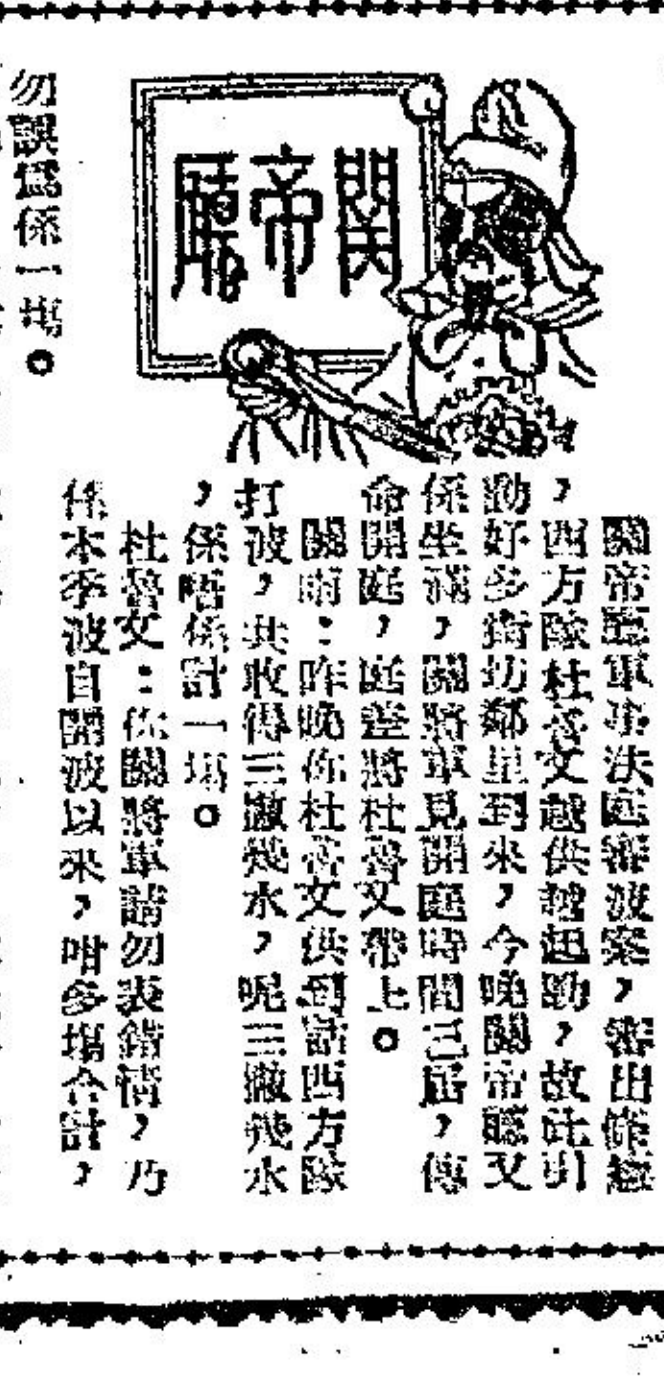 關帝廳
關帝廳軍事法庭審波案，審出條癮
，西方隊杜督文越供越起勁，故此引
動好多街坊鄰里到來，今晚關帝廳又
係坐滿，關將軍見開庭時間已屆，傳
命開庭，庭差將杜督文帶上。
關問：昨晚你杜督文供到話西方隊
打波，共收得三撇幾水，呢三撇幾水
，係唔係計一塲。
杜督文：你關將軍請勿表錯情，乃
係本季波自開波以來，咁多塲合計，
勿誤爲係一塲。